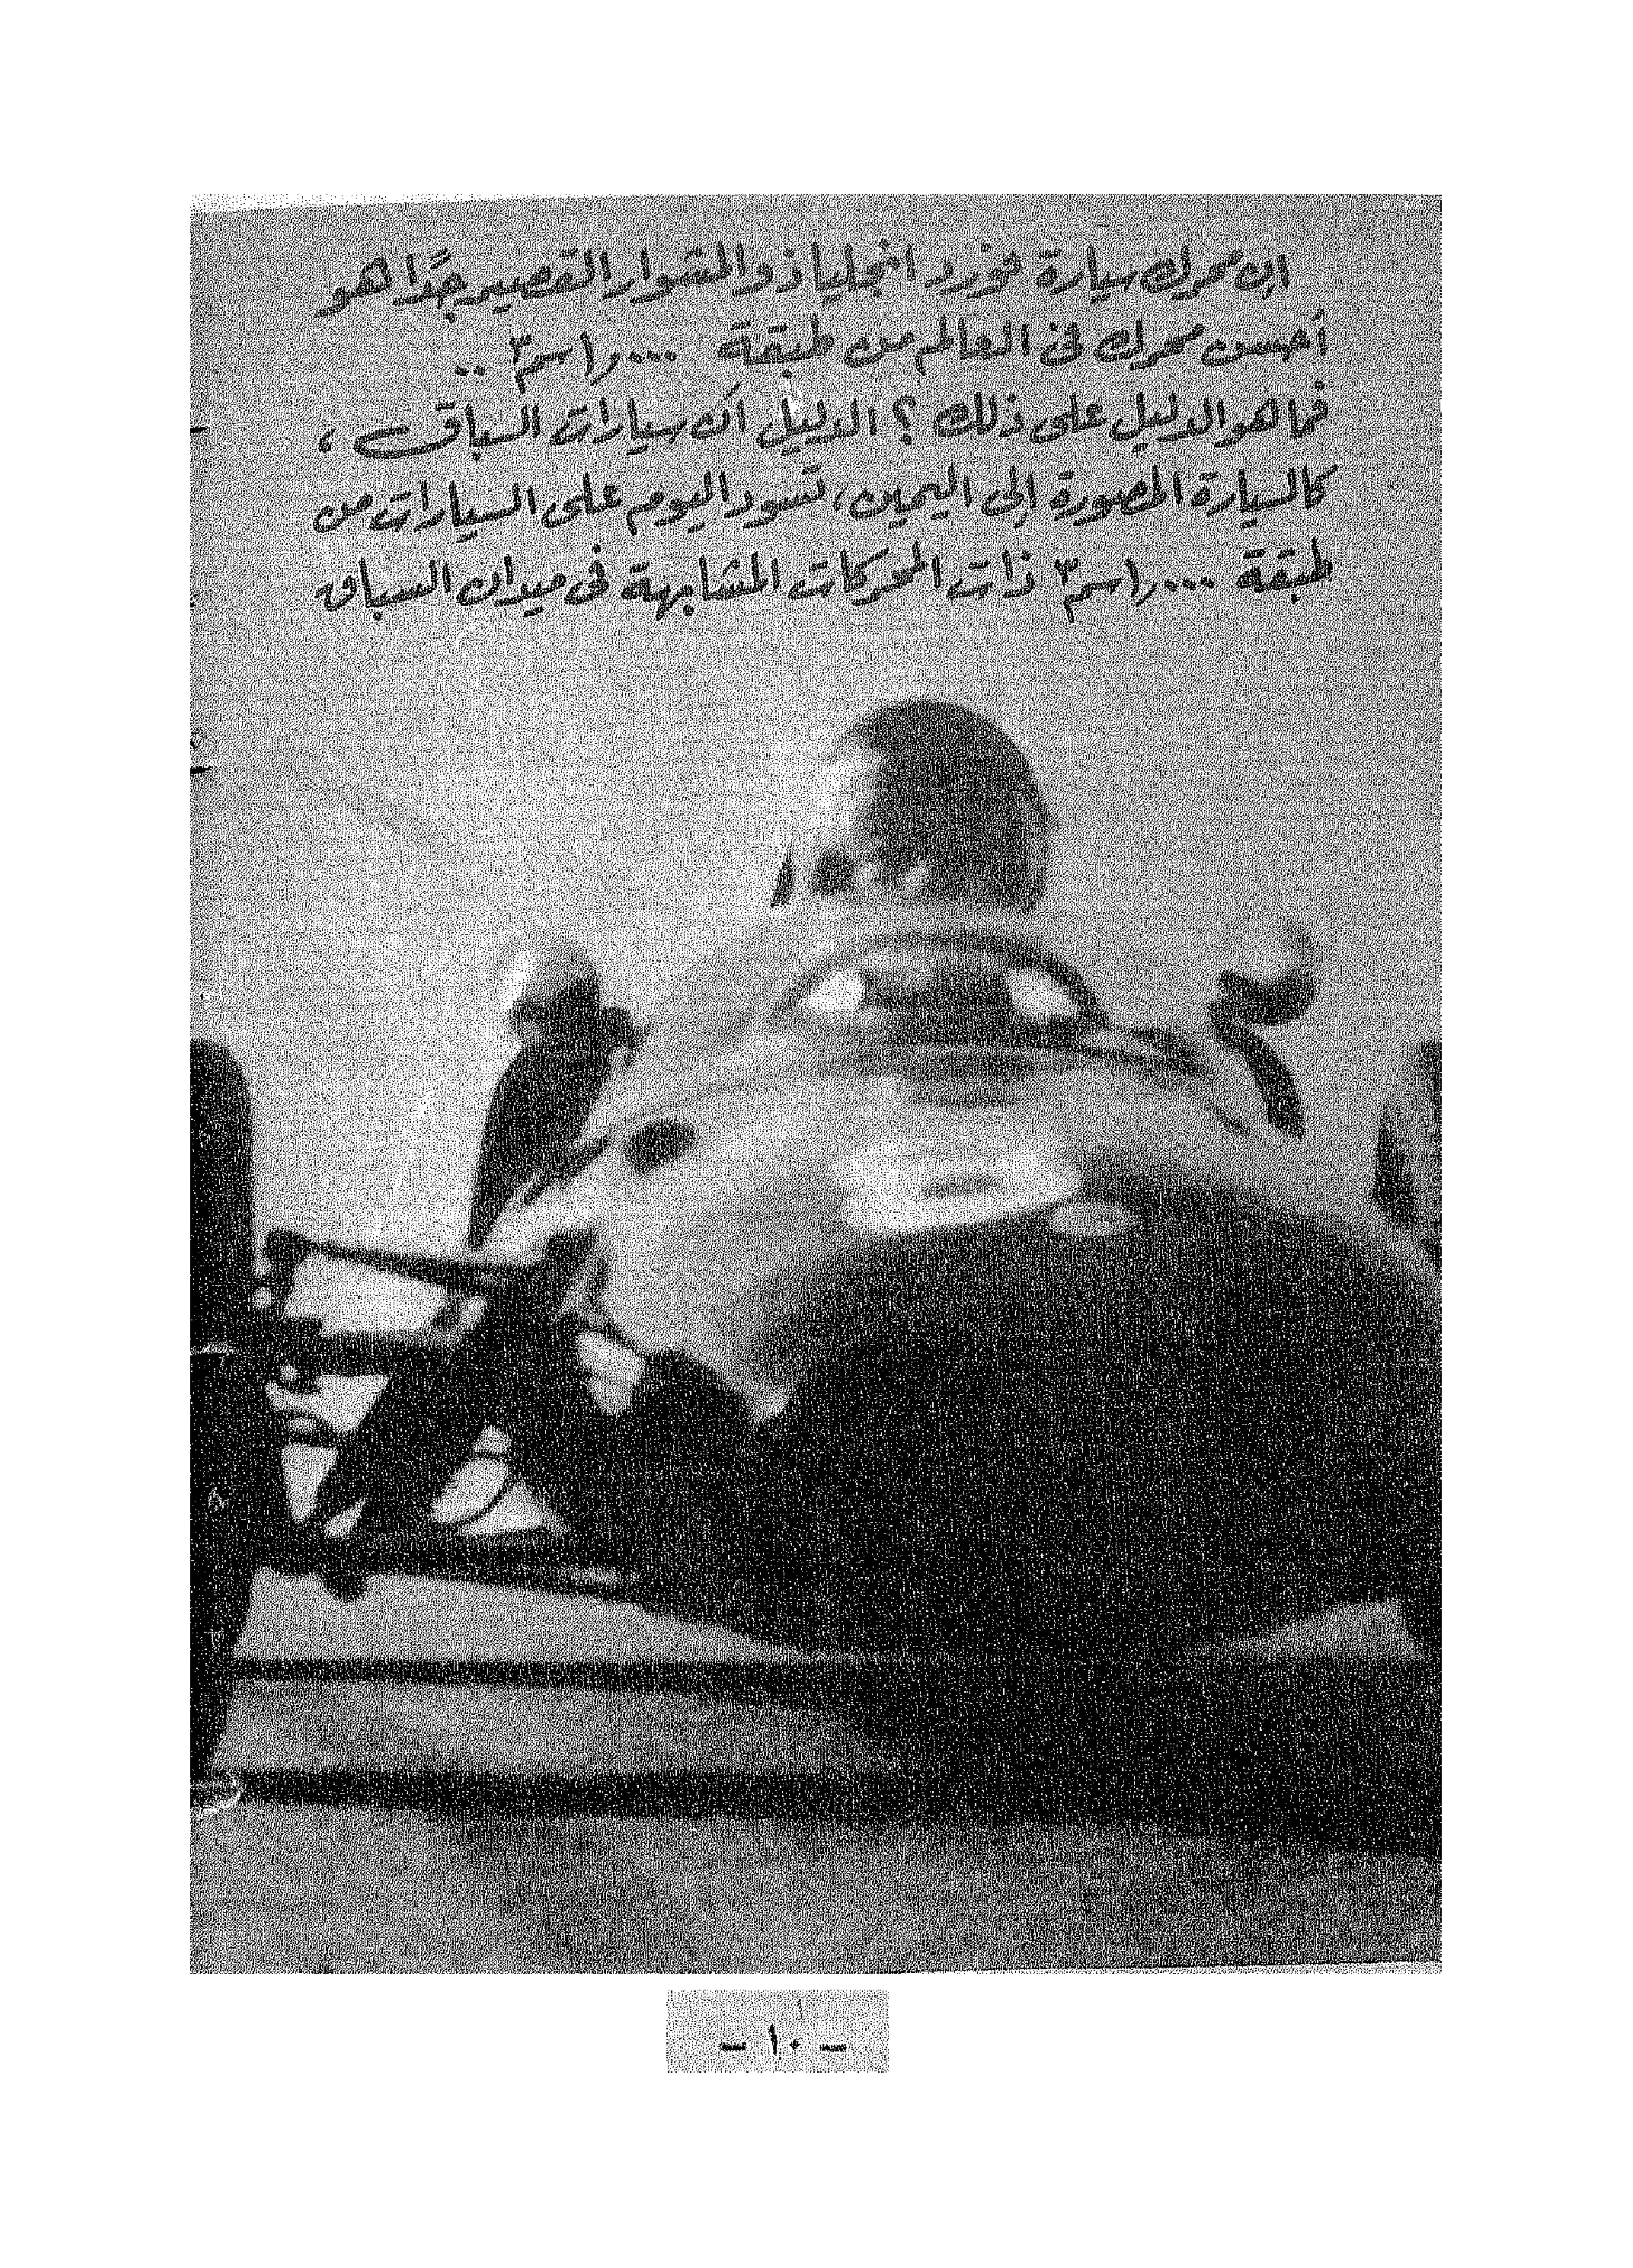 إن محرك سيارة فورد انجليا ذو المشوار القصير جدًا هو
أحسن محرك فى العالم من طبقة ١,٠٠٠ سم٣ ..
فما هو الدليل على ذلك ؟ الدليل أن سيارات السباق ،
كالسيارة المصورة إلى اليمين، تسود اليوم على السيارات من
طبقة ١,٠٠٠ سم٣ ذات المحركات المشابهة فى ميدان السباق
– ١٠ –